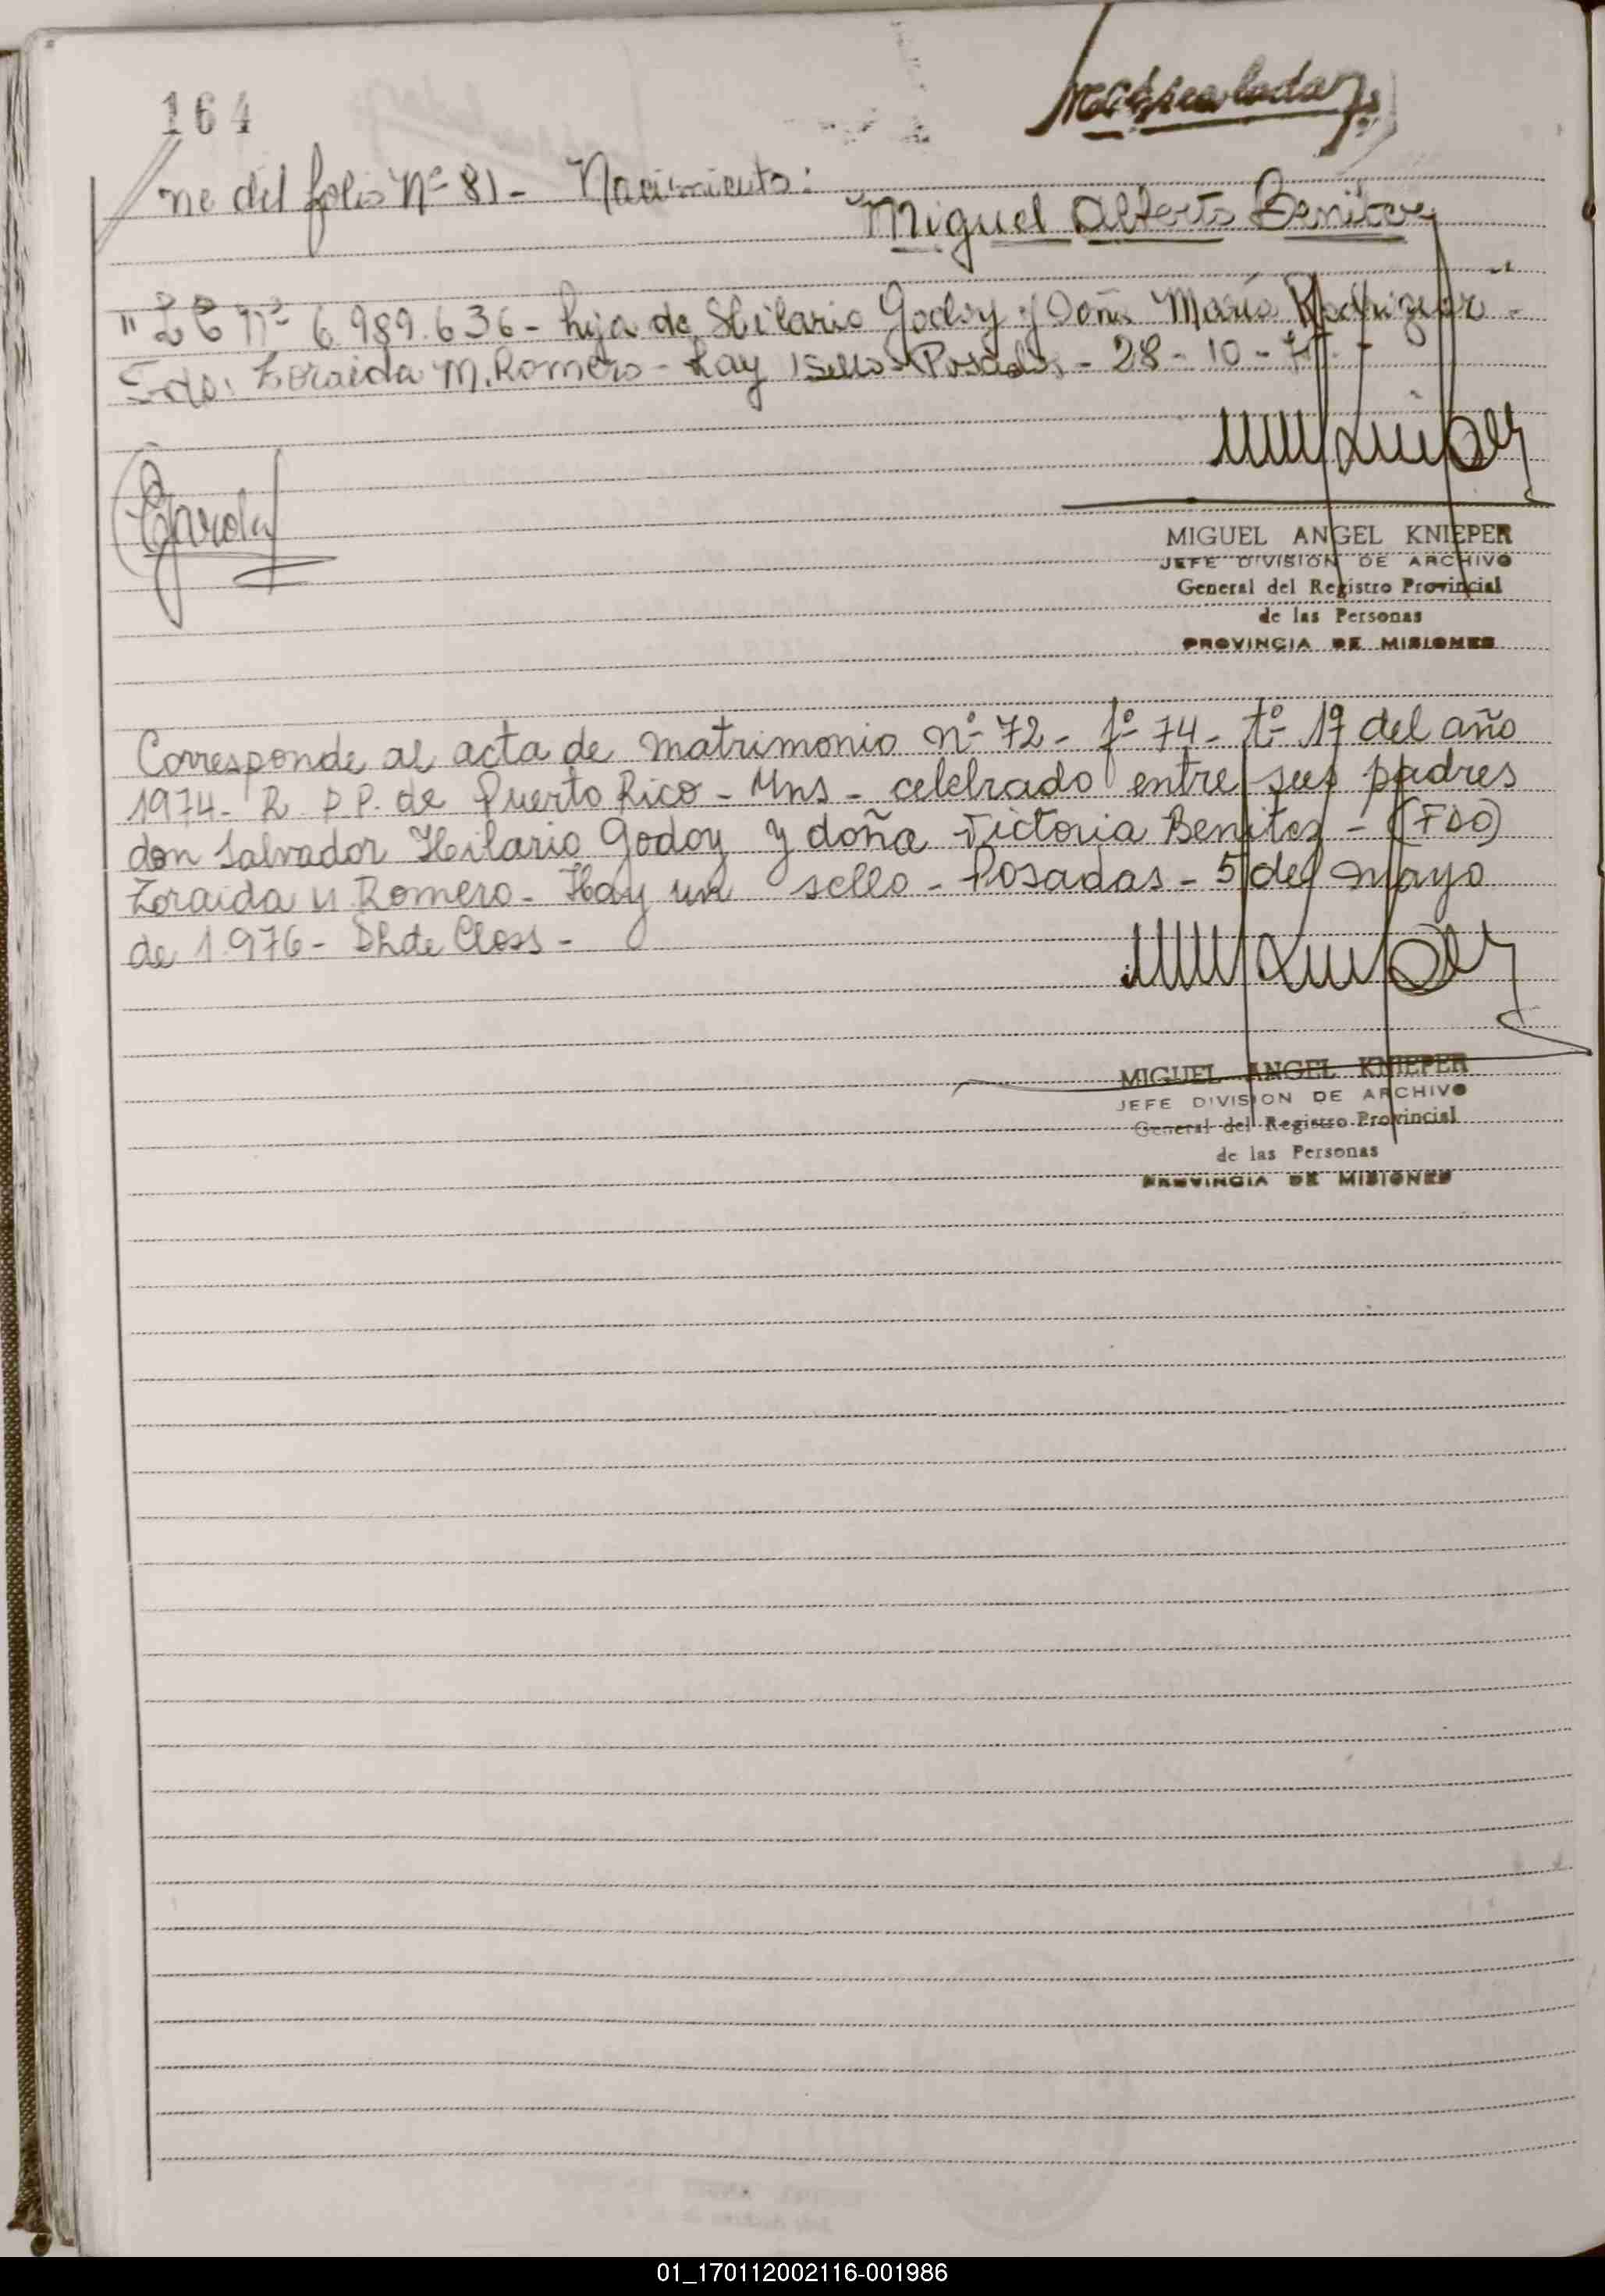 164
//ne del folio Nº 81 - Nacimiento:
Miguel Alberto Benitez
" LC Nº 6.989.636 - hija de Hilario Godoy y Doña María Rodriguez -
Fdo: Zoraida M. Romero - hay 1 sello - Posadas - 28 - 10 -
MIGUEL ANGEL KNIEPER
JEFE DIVISION DE ARCHIVO
General del Registro Provincial
de las Personas
PROVINCIA DE MISIONES
Corresponde al acta de matrimonio nº 72 - fº 74 - tº 1º del año
1974 - R. P. P. de Puerto Rico - Mns - celebrado entre sus padres
don Salvador Hilario Godoy y doña Victoria Benitez - (FDO)
Zoraida M. Romero - Hay un sello - Posadas - 5 de mayo
de 1.976 - Dh de Closs -
MIGUEL ANGEL KNIEPER
JEFE DIVISION DE ARCHIVO
General del Registro Provincial
de las Personas
PROVINCIA DE MISIONES
01_170112002116-001986